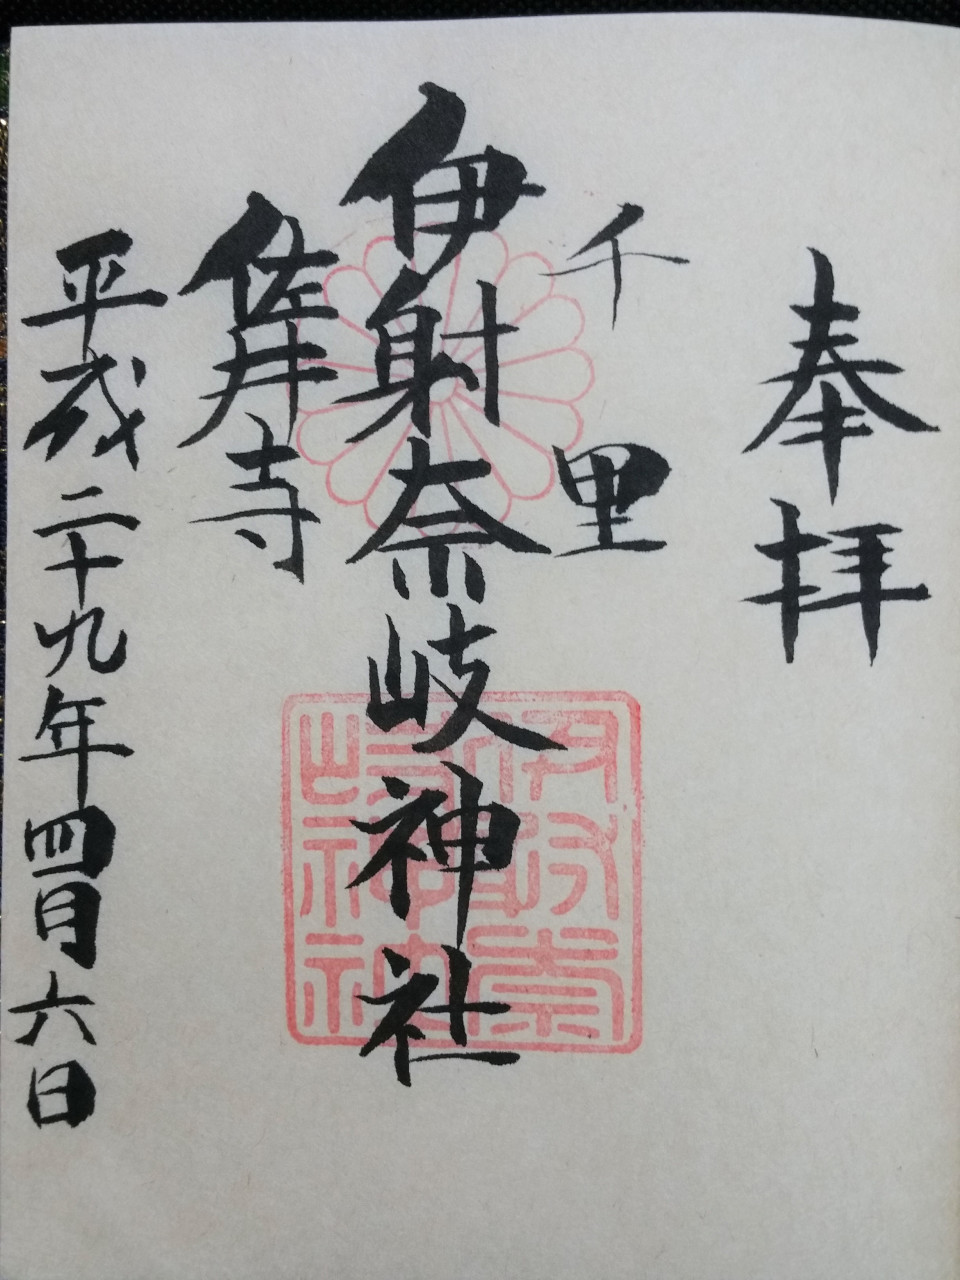 奉拝
千里
伊射奈岐神社
佐井寺
平成二十九年四月六日
伊射奈
岐神社